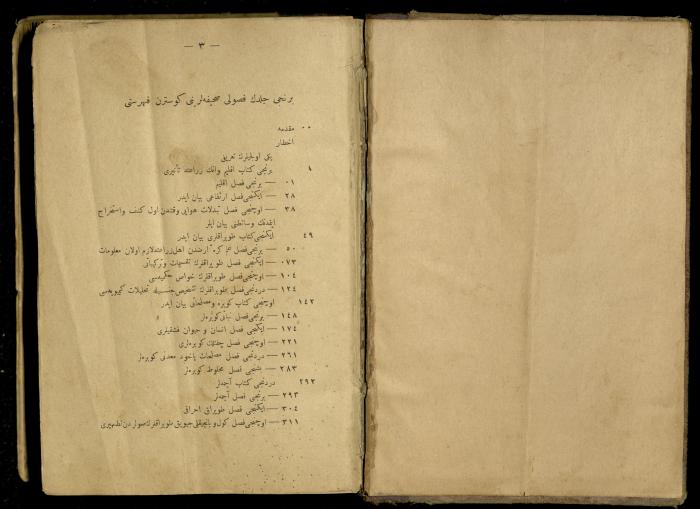 — ٣ —
برنجی جلدك فصولی صحیفه‌لرینی كوسترن فهرستی
٠٠ مقدمه
اخطار
یكی اولچیلرك تعریفی
٨ برنجی كتاب اقلیم وانك زراعته تأثیری
٠١ — برنجی فصل اقلیم
٢٨ — ایكنجی فصل ارتفاعی بیان ایدر
٣٨ — اوچنجی فصل تبدلات هواییی وقتندن اول كشف واستخراج
ایتمك وسائطنی بیان ایدر
٤٩ ایكنجی كتاب طوپراقلری بیان ایدر
٥٠ — برنجی فصل علم كره ارضدن اهل زراعته لازم اولان معلومات
٠٧٣ — ایكنجی فصل طوپراقلرك تقسیمات وتركیباتی
١٠٤ — اوچنجی فصل طوپراقلرك خواص حكمیه‌سی
١٢٤ — دردنجی فصل طوپراقلرك تشخیص جنسیله تحلیلات كیمویه‌سی
١٤٢ اوچنجی كتاب كوبره ومصلحاتی بیان ایدر
١٤٨ — برنجی فصل نباتی كوبره‌لر
١٧٤ — ایكنجی فصل انسان و حیوان فشقیلری
٢٢١ — اوچنجی فصل چفتلك كوبره‌لری
٢٦١ — دردنجی فصل مصلحات یاخود معدنی كوبره‌لر
٢٨٣ — بشنجی فصل مخلوط كوبره‌لر
٢٩٢ دردنجی كتاب آچه‌لر
٢٩٣ — برنجی فصل آچه‌لر
٣٠٤ — ایكنجی فصل طوپراق احراقی
٣١١ — اوچنجی فصل كول وباتاقلق جیویق طوپراقلرك صولردن تطهیری